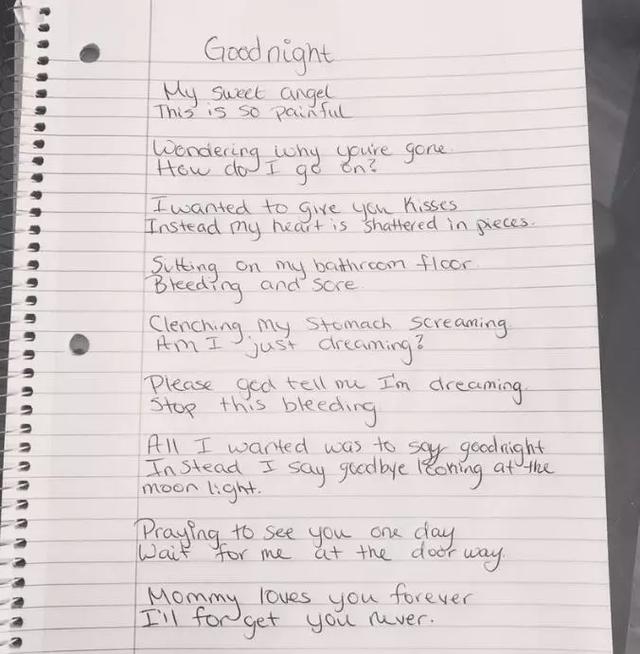 Goodnight
My sweet angel
This is so painful
Wondering why you're gone.
How do I go on?
I wanted to give you kisses
Instead my heart is shattered in pieces.
Sitting on my bathroom floor.
Bleeding and sore.
Clenching my stomach screaming
Am I just dreaming?
Please god tell me I'm dreaming.
Stop this bleeding
All I wanted was to say goodnight
Instead I say goodbye looning at the
moon light.
Praying to see you one day
Wait for me at the door way.
Mommy loves you forever
I'll forget you never.